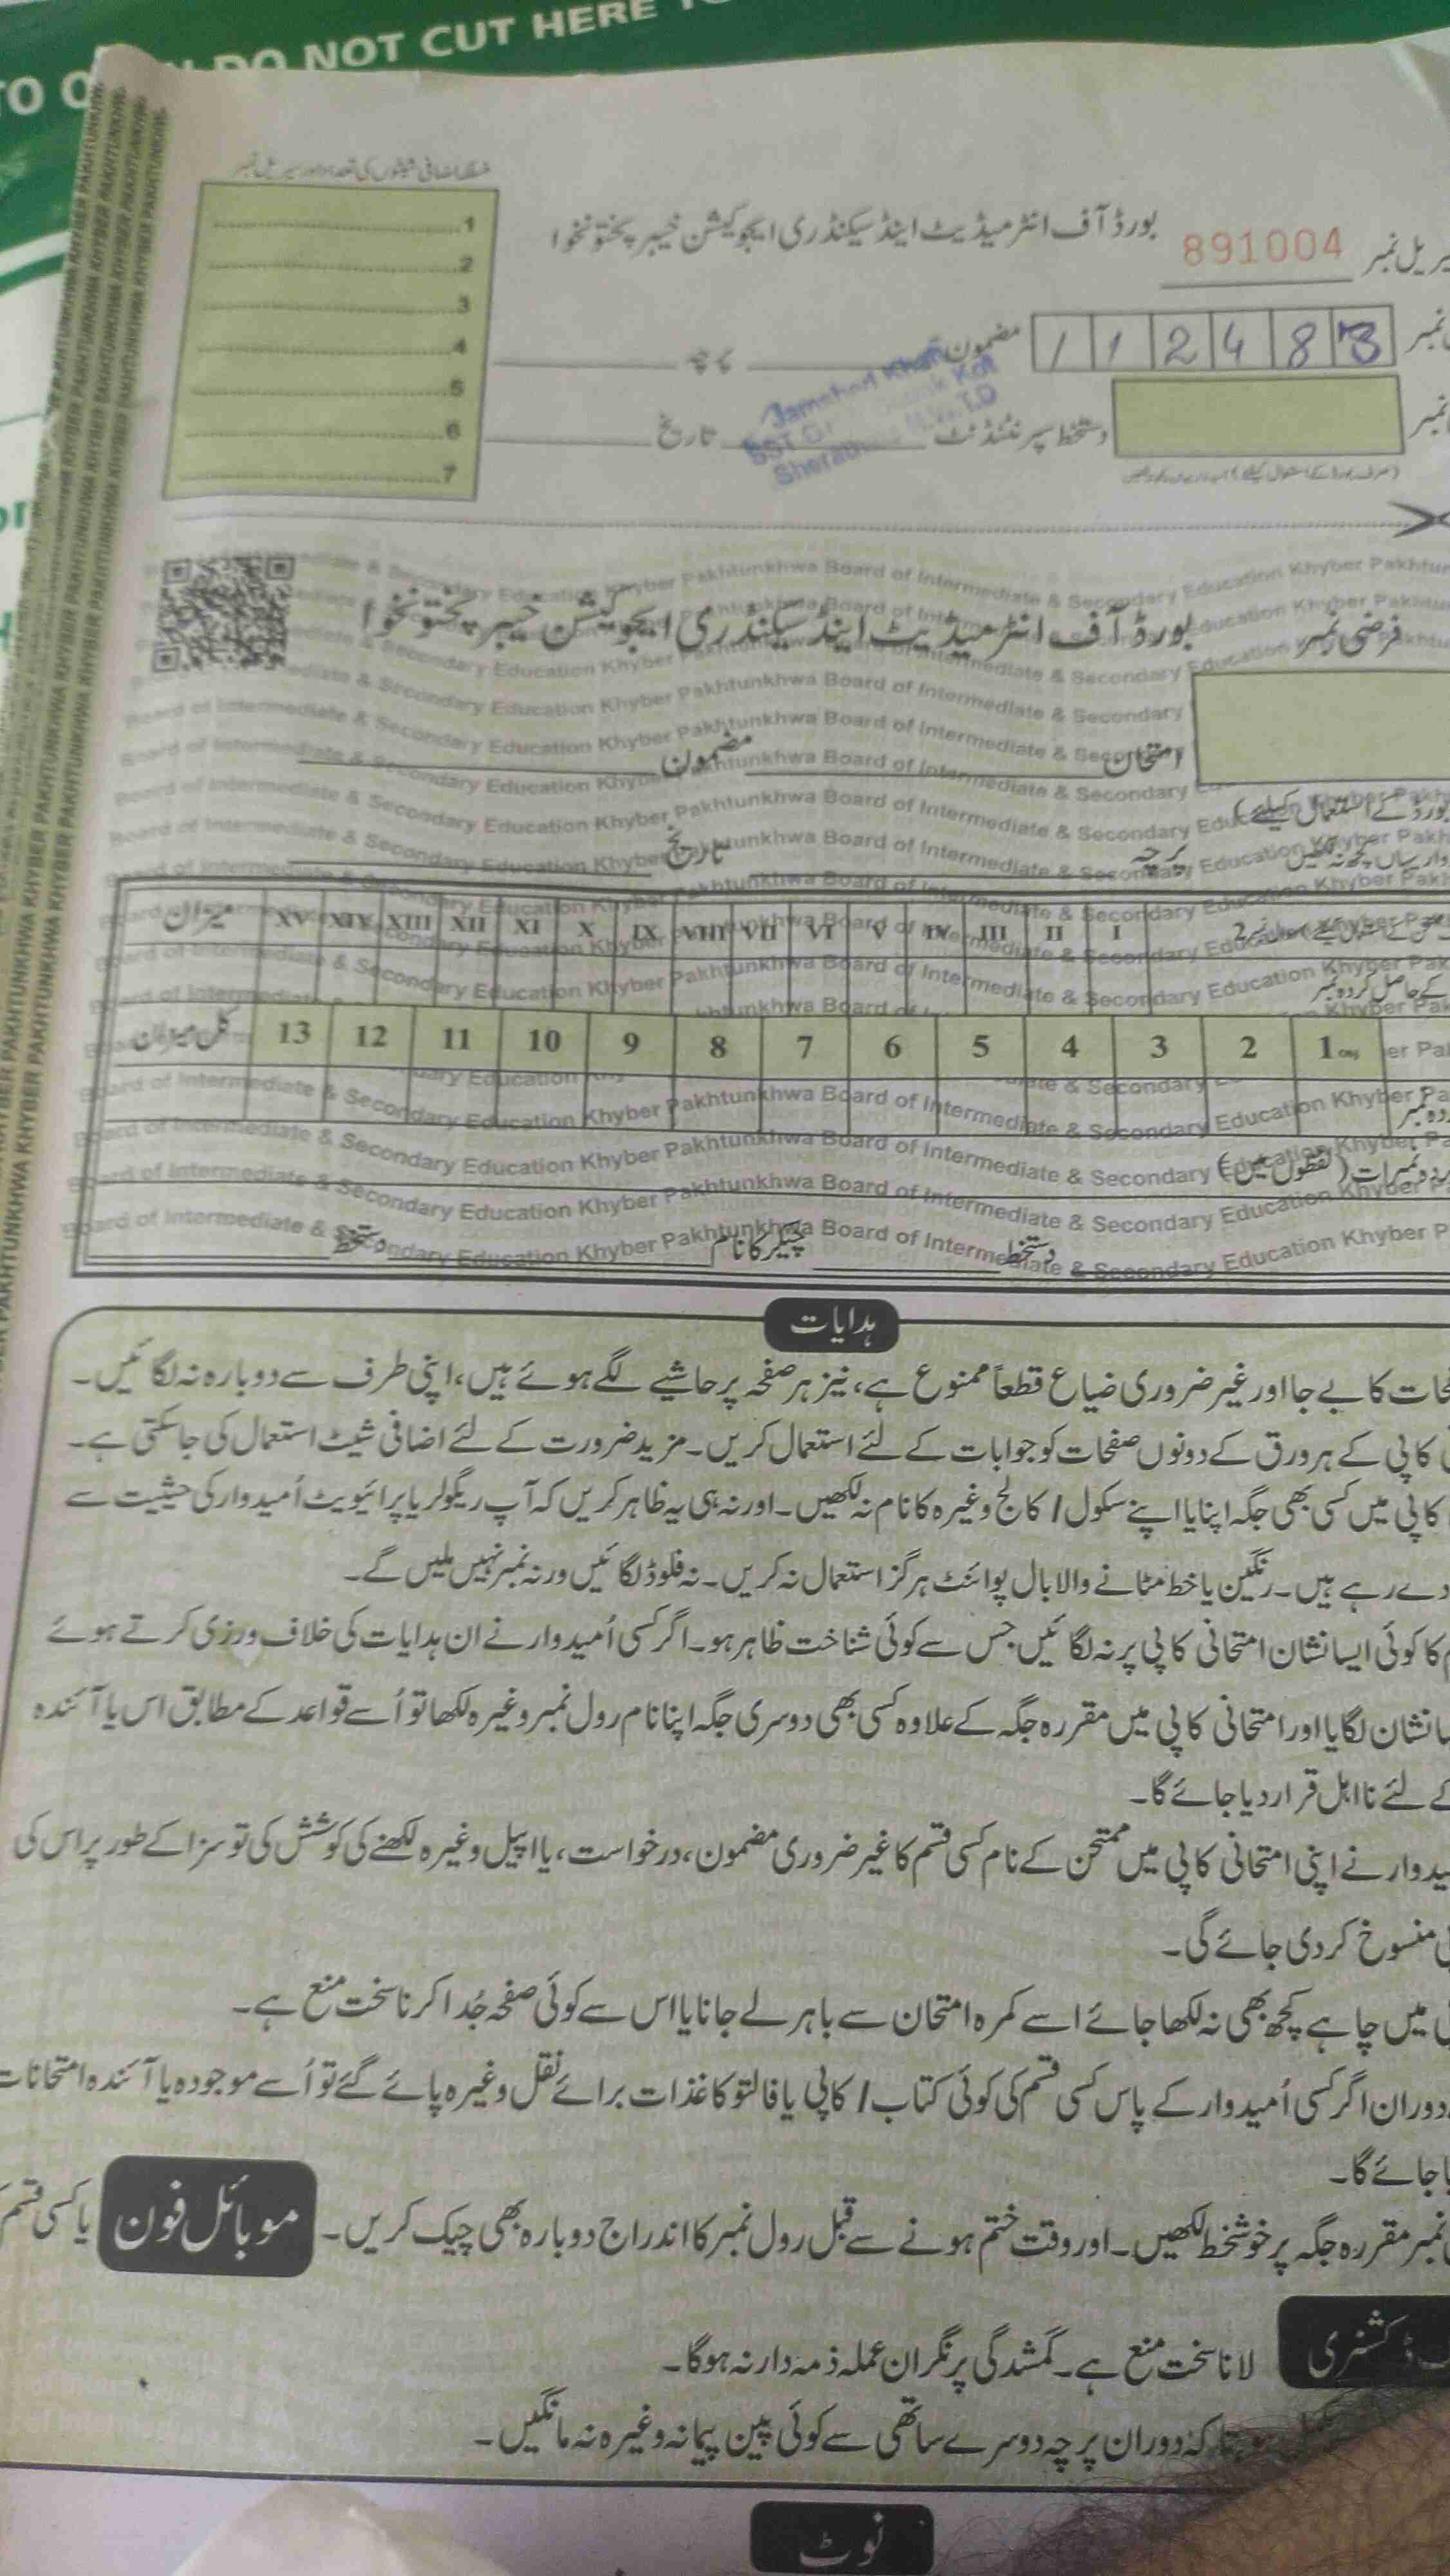 DO NOT CUT HERE
بورڈ آف انٹرمیڈیٹ اینڈ سیکنڈری ایجوکیشن خیبر پختونخوا
891004
1
2
3
4
5
6
7
مضمون
پرچہ
1 1 2 4 8
دستخط سپرنٹنڈنٹ
تاریخ
Jamshed Khan
فرضی نمبر
بورڈ آف انٹرمیڈیٹ اینڈ سیکنڈری ایجوکیشن خیبر پختونخوا
Board of Intermediate & Secondary Education Khyber Pakhtunkhwa
امتحان
مضمون
بورڈ کے استعمال کیلئے)
پرچہ
تاریخ
I II III IV V VI VII VIII IX X XI XII XIII XIV XV میزان
کے حاصل کردہ نمبر
1 2 3 4 5 6 7 8 9 10 11 12 13 کل میزان
(لفظوں میں)
دستخط
چیکر کا نام
دستخط
ہدایات
کا بے جا اور غیر ضروری ضیاع قطعاً ممنوع ہے، نیز ہر صفحہ پر حاشیے لگے ہوئے ہیں، اپنی طرف سے دوبارہ نہ لگائیں۔
کاپی کے ہر ورق کے دونوں صفحات کو جوابات کے لئے استعمال کریں۔ مزید ضرورت کے لئے اضافی شیٹ استعمال کی جاسکتی ہے۔
کاپی میں کسی بھی جگہ اپنا یا اپنے سکول / کالج وغیرہ کا نام نہ لکھیں۔ اور نہ ہی یہ ظاہر کریں کہ آپ ریگولر یا پرائیویٹ اُمیدوار کی حیثیت سے
دے رہے ہیں۔ رنگین یا خط مٹانے والا بال پوائنٹ ہرگز استعمال نہ کریں۔ نہ فلوڈ لگائیں ورنہ نمبر نہیں ملیں گے۔
کا کوئی ایسا نشان امتحانی کاپی پر نہ لگائیں جس سے کوئی شناخت ظاہر ہو۔ اگر کسی اُمیدوار نے ان ہدایات کی خلاف ورزی کرتے ہوئے
نشان لگایا اور امتحانی کاپی میں مقررہ جگہ کے علاوہ کسی بھی دوسری جگہ اپنا نام رول نمبر وغیرہ لکھا تو اُسے قواعد کے مطابق اس یا آئندہ
کے لئے نااہل قرار دیا جائے گا۔
نے اپنی امتحانی کاپی میں ممتحن کے نام کسی قسم کا غیر ضروری مضمون، درخواست، یا اپیل وغیرہ لکھنے کی کوشش کی تو سزا کے طور پر اس کی
منسوخ کردی جائے گی۔
میں چاہے کچھ بھی نہ لکھا جائے اسے کمرہ امتحان سے باہر لے جانا یا اس سے کوئی صفحہ جُدا کرنا سخت منع ہے۔
دوران اگر کسی اُمیدوار کے پاس کسی قسم کی کوئی کتاب / کاپی یا فالتو کاغذات برائے نقل وغیرہ پائے گئے تو اُسے موجودہ یا آئندہ امتحانات
جائے گا۔
نمبر مقررہ جگہ پر خوشخط لکھیں۔ اور وقت ختم ہونے سے قبل رول نمبر کا اندراج دوبارہ بھی چیک کریں۔ موبائل فون یا کسی قسم
ڈکشنری لانا سخت منع ہے۔ گمشدگی پر نگران عملہ ذمہ دار نہ ہوگا۔
تاکہ دوران پرچہ دوسرے ساتھی سے کوئی پین پیمانہ وغیرہ نہ مانگیں۔
نوٹ